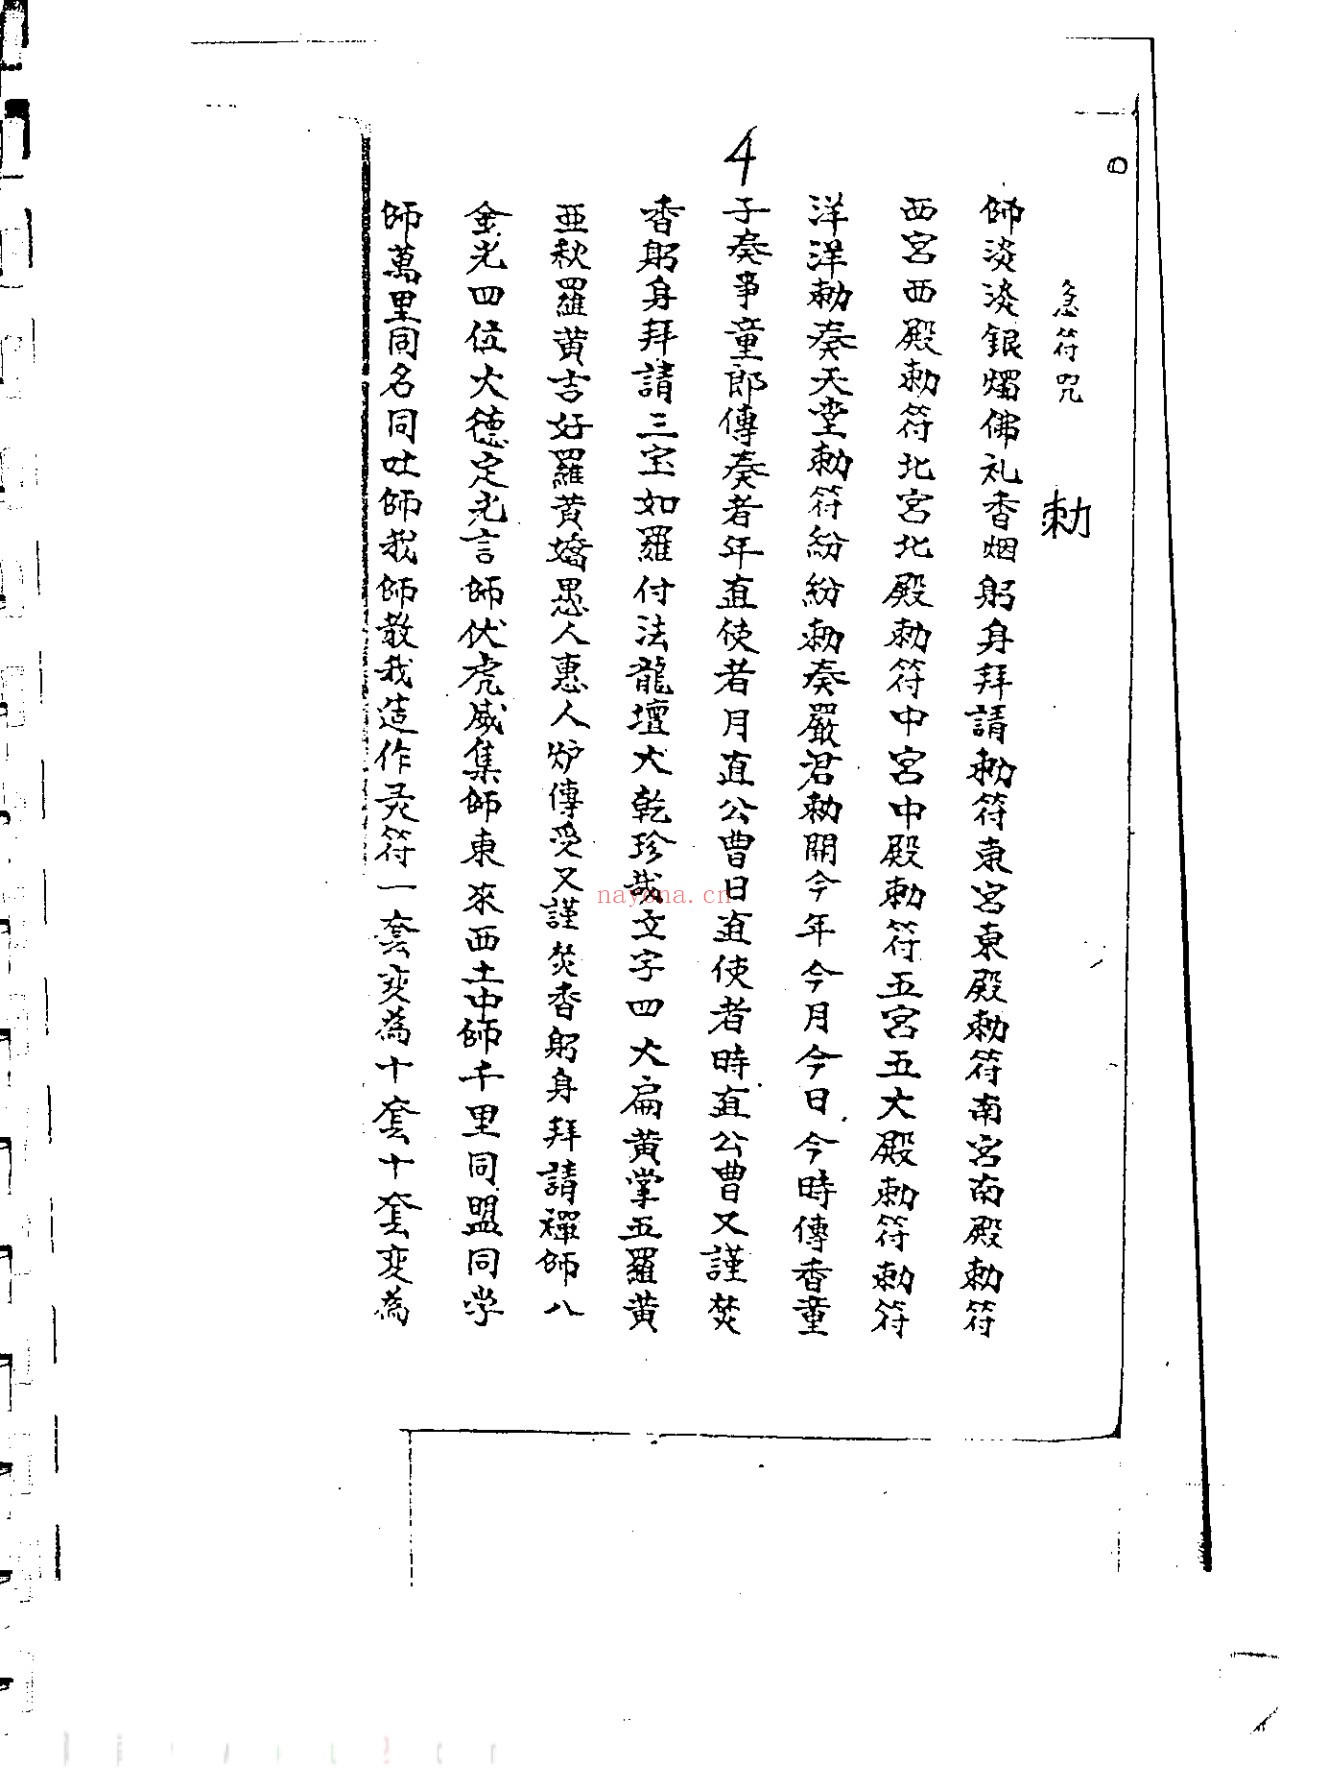 4
急符咒 勅
師淡淡銀燭佛礼香烟躬身拜請勅符東宮東殿勅符南宮南殿勅符
西宮西殿勅符北宮北殿勅符中宮中殿勅符五宮五大殿勅符勅符
洋洋勅奏天堂勅符紛紛勅奏嚴君勅開今年今月今日今時傳香童
子奏事童郎傳奏者年直使者月直公曹日直使者時直公曹又謹焚
香躬身拜請三宝如羅付法龍壇大乾珍哉文字四大扁黄掌五羅黄
亜秋羅黄吉好羅黄嬌愚人惠人炉傳受又謹焚香躬身拜請禪師八
金光四位大德定光言師伏虎威集師東來西土中師千里同盟同学
師萬里同名同吐師我師教我造作灵符一套变為十套十套变為
nayona.cn